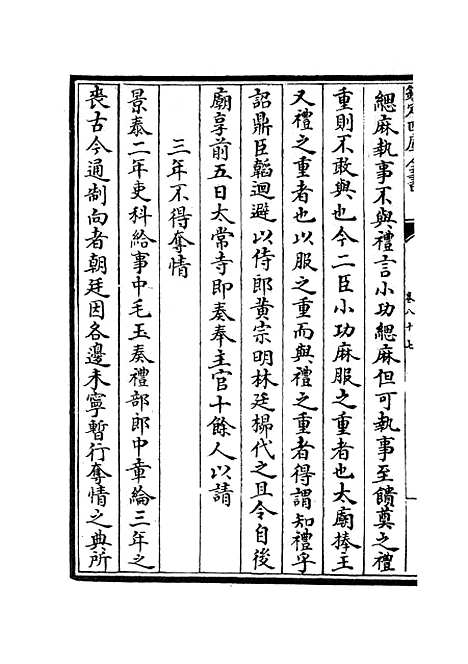 欽定四庫全書
卷八十七
緦麻執事不與禮言小功緦麻但可執事至饋奠之禮
重則不敢與也今二臣小功麻服之重者也太廟捧主
又禮之重者也以服之重而與禮之重者得謂知禮乎
詔鼎臣韜迴避以侍郎黃宗明林廷㭿代之且令自後
廟享前五日太常寺即奏奉主官十餘人以請
三年不得奪情
景泰二年吏科給事中毛玉奏禮部郎中章綸三年之
喪古今通制向者朝廷因各邊未寧暫行奪情之典所